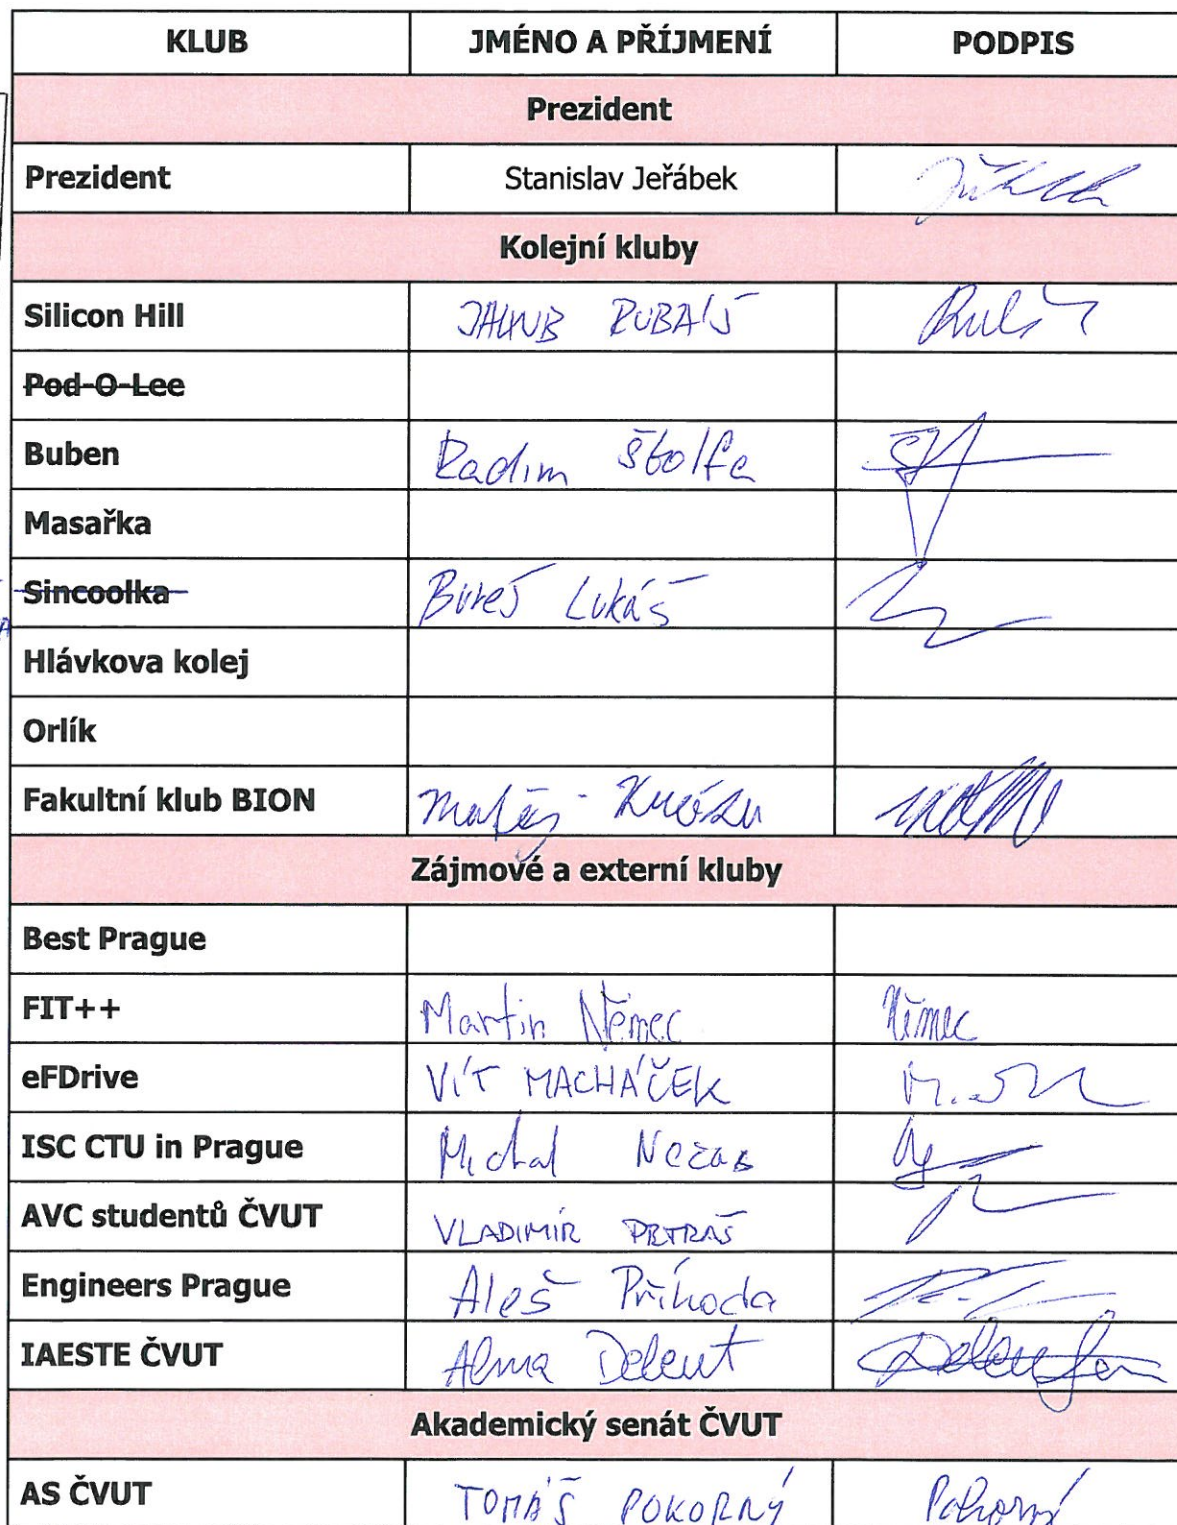 KLUB JMÉNO A PŘÍJMENÍ PODPIS
Prezident
Prezident Stanislav Jeřábek
Kolejní kluby
Silicon Hill JAKUB RUBÁŠ
Pod-O-Lee
Buben Radim Štolfa
Masařka
Sincoolka Bureš Lukáš
Hlávkova kolej
Orlík
Fakultní klub BION Matěj
Zájmové a externí kluby
Best Prague
FIT++ Martin Němec Němec
eFDrive VÍT MACHÁČEK
ISC CTU in Prague Michal
AVC studentů ČVUT VLADIMÍR PETRÁŠ
Engineers Prague Aleš Příhoda
IAESTE ČVUT Alma Delent
Akademický senát ČVUT
AS ČVUT TOMÁŠ POKORNÝ Pokorný